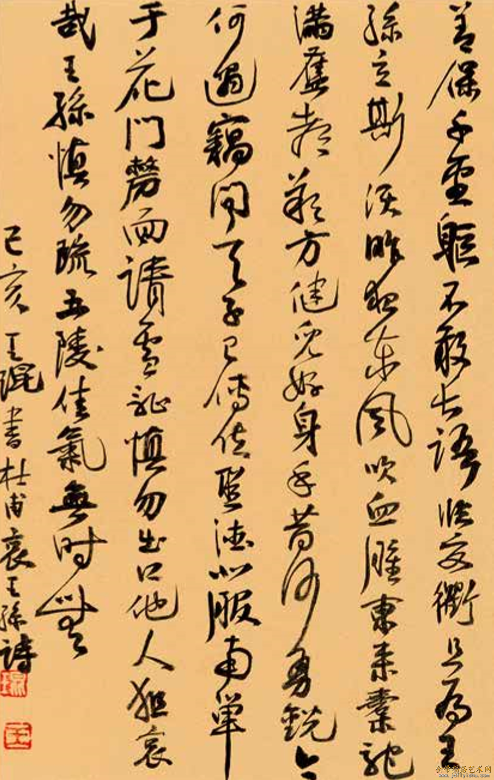 善保千金軀不敢長語臨交衢且為王
孫立斯須昨夜東風吹血腥東來橐駝
滿舊都朔方健兒好身手昔何勇銳今
何遇竊聞天子已傳位聖德北服南單
于花門剺面請雪恥慎勿出口他人狙哀
哉王孫慎勿疏五陵佳氣無時無
己亥王琨書杜甫哀王孫詩
琨
王